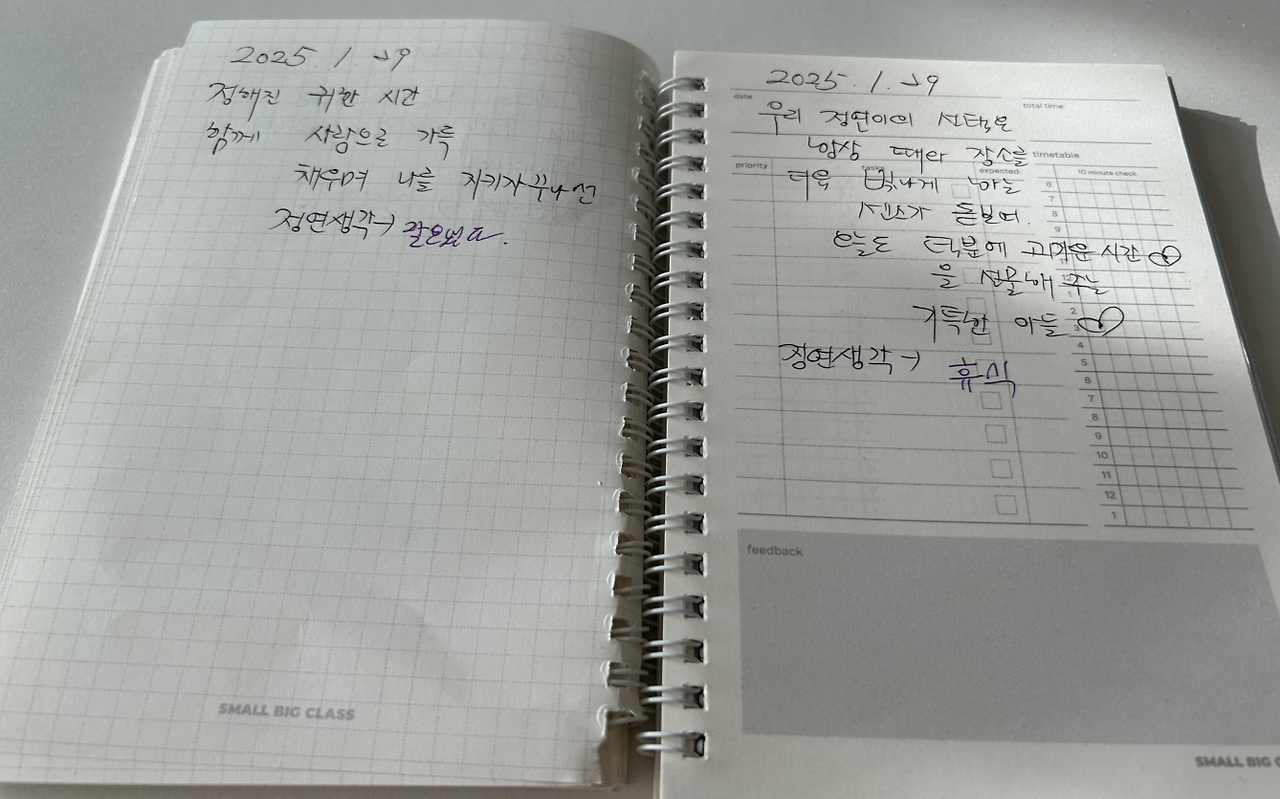 2025. 1. 29
정해진 귀한 시간
함께 사랑으로 가득
채우며 나를 지키자
정연생각→ 잘모았다.
SMALL BIG CLASS
2025. 1. 29
date
total time
우리 정연이의 선택은
항상 때와 장소를
timetable
priority
tasks
expected
10 minute check
더욱 빛나게 하는
센스가 돋보여.
오늘도 덕분에 즐거운 시간♡
을 선물해 주는
기특한 아들♡
정연생각→ 휴식
6
7
8
9
1
2
3
4
5
6
7
8
9
10
11
12
1
feedback
SMALL BIG C